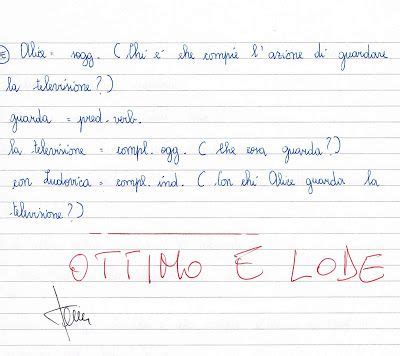 Alice = sogg. ( Chi è che compie l'azione di guardare
la televisione?)
guarda = pred. verb.
la televisione = compl. ogg. ( Che cosa guarda?)
con Ludovica = compl. ind. ( Con chi Alice guarda la
televisione?)
OTTIMO E LODE